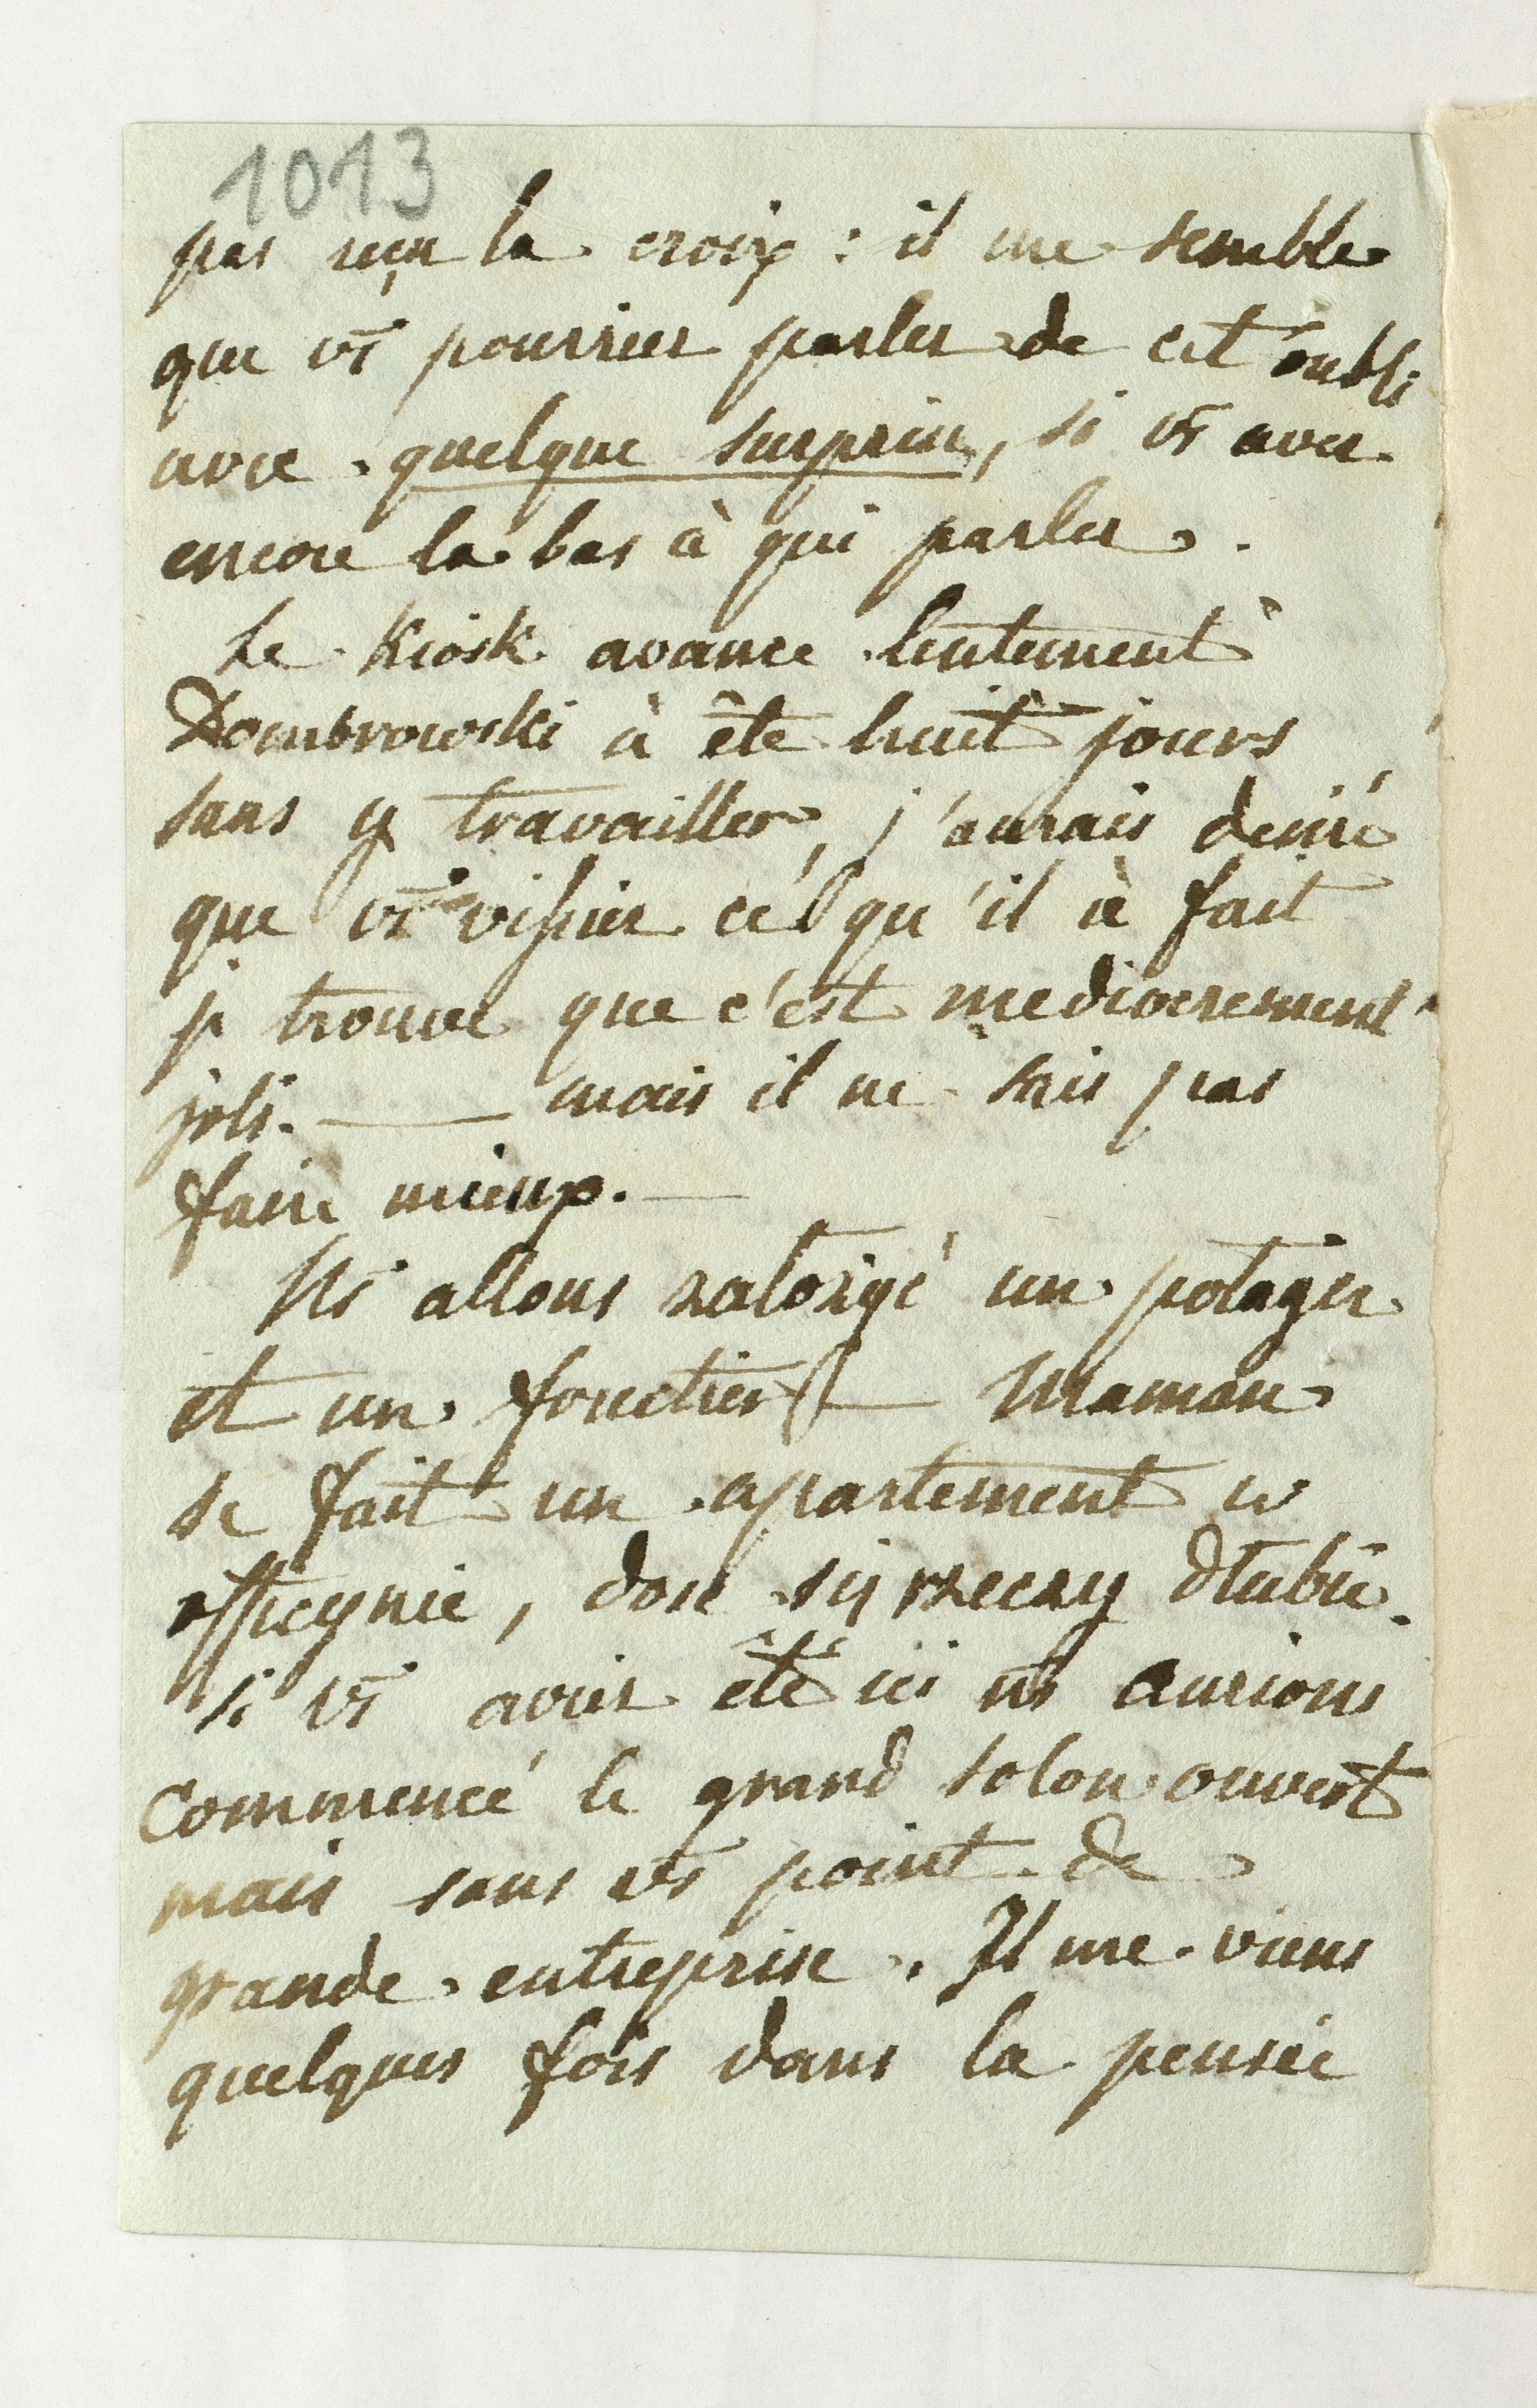 1013
pas reçu la croix : il me semble
que vs pourriez parler de cet oubli
avec quelque surprise, si vs avez
encore la bas à qui parler.
Le Kiosk avance lentement
Dombrowski à été huit jours
sans y travailler, j'aurais desiré
que vs vissiez cé qu'il à fait
je trouve que c'est mediocrement
joli. — mais il ne sais pas
faire mieux. —
Ns allons założyć un potager
et un fruitier — Maman
se fait un apartement w
officynie, dosé się rzeczy dłubie.
si vs aviez été ici ns aurions
commencé le grand salon ouvert
mais sans vs point de
grande entreprise. Il me viens
quelques fois dans la pensée